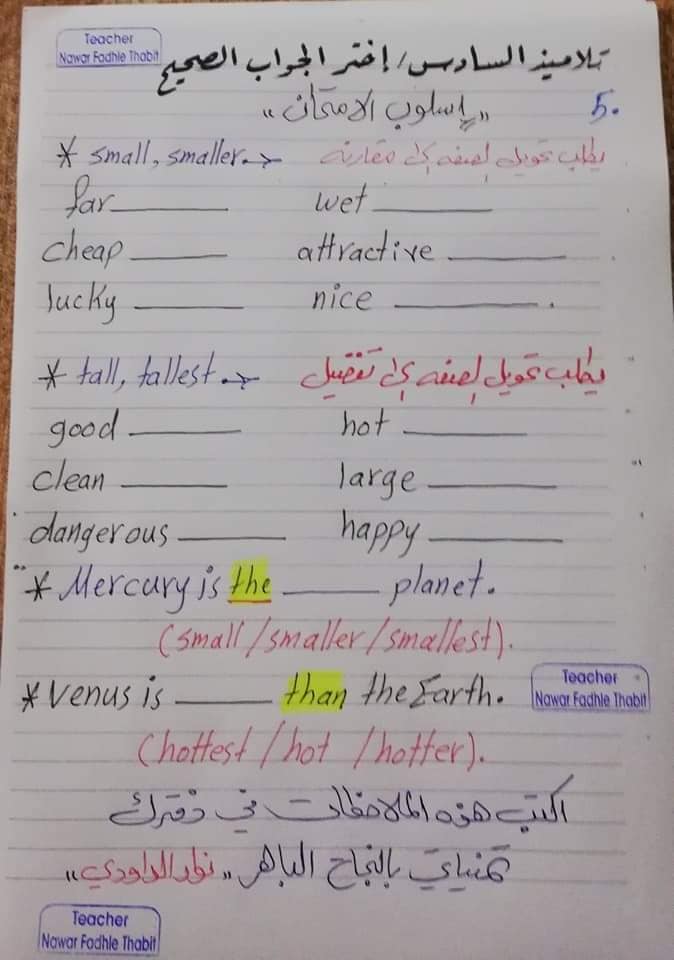 Teacher
Nawar Fadhle Thabit
تلاميذ السادس / إختر الجواب الصحيح
5. "إسلوب الامتحان"
* small, smaller. يطلب تحويل الصفه إلى مقارنه
far ________ wet ________
cheap ________ attractive ________
lucky ________ nice ________.
* tall, tallest. يطلب تحويل الصفه إلى تفضيل
good ________ hot ________
clean ________ large ________
dangerous ________ happy ________
* Mercury is the ________ planet.
(small / smaller / smallest).
* Venus is ________ than the Earth.
Teacher
Nawar Fadhle Thabit
(hottest / hot / hotter).
اكتب هذه الملاحظات في دفترك
تمنياتي بالنجاح الباهر "نوار الداودي"
Teacher
Nawar Fadhle Thabit